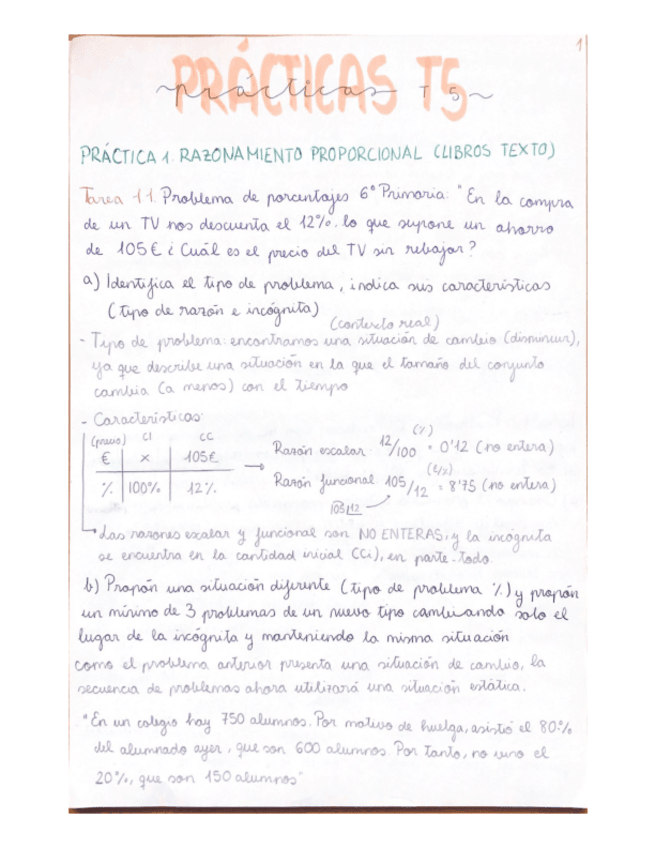 1
PRÁCTICAS T5
prácticas T5
PRÁCTICA 1. RAZONAMIENTO PROPORCIONAL (LIBROS TEXTO)
Tarea 1.1. Problema de porcentajes 6º Primaria: "En la compra
de un TV nos descuenta el 12%. lo que supone un ahorro
de 105€ ¿Cuál es el precio del TV sin rebajar?
a) Identifica el tipo de problema, indica sus características
(tipo de razón e incógnita)
(contexto real)
- Tipo de problema: encontramos una situación de cambio (disminuir),
ya que describe una situación en la que el tamaño del conjunto
cambia (a menos) con el tiempo
- Características:
(precio) CI CC
€ x 105€
% 100% 12%
(%)
Razón escalar: 12/100 = 0'12 (no entera)
(€/%)
Razón funcional: 105/12 = 8'75 (no entera)
105 12
Las razones escalar y funcional son NO ENTERAS, y la incógnita
se encuentra en la cantidad inicial (Ci), en parte-todo.
b) Propón una situación diferente (tipo de problema %) y propón
un mínimo de 3 problemas de un nuevo tipo cambiando solo el
lugar de la incógnita y manteniendo la misma situación
como el problema anterior presenta una situación de cambio, la
secuencia de problemas ahora utilizará una situación estática.
"En un colegio hay 750 alumnos. Por motivo de huelga, asistió el 80%
del alumnado ayer, que son 600 alumnos. Por tanto, no vino el
20%, que son 150 alumnos"